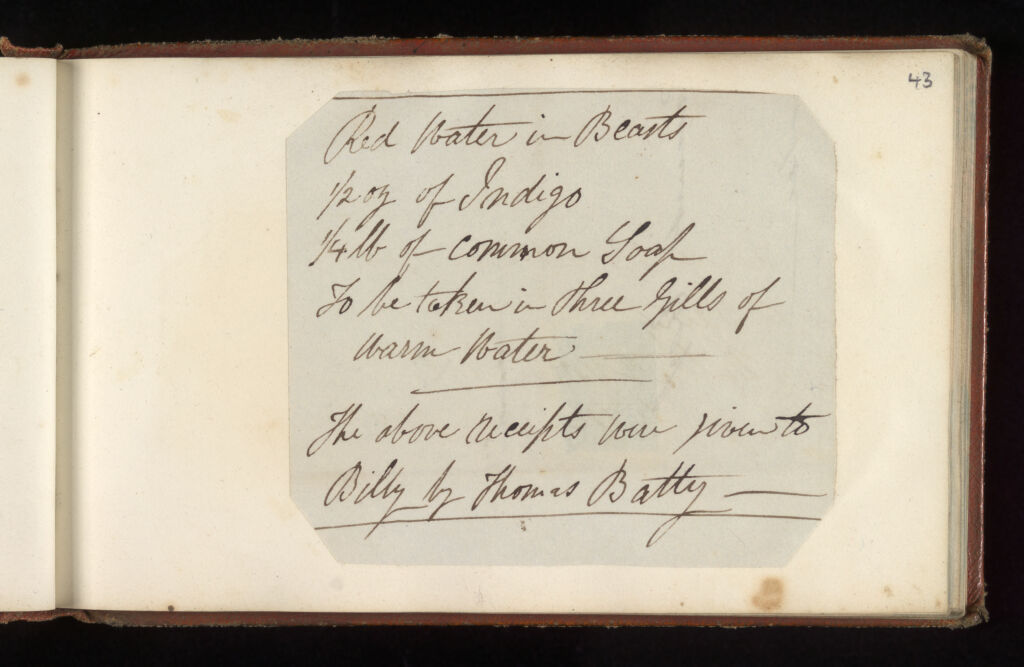 43
Red Water in Beasts
1/2 oz of Indigo
1/4 lb of common Soap
To be taken in three Gills of
Warm Water
The above receipts were given to
Billy by Thomas Batty